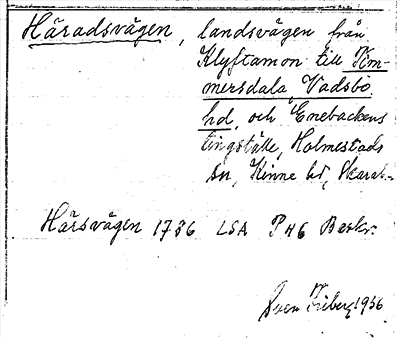 Häradsvägen, landsvägen från
Klyftamon till Tim-
mersdala, Vadsbo
hd, och Enebackens
tingställe, Holmestads
sn, Kinne hd, Skarab.-
Härsvägen 1786 LSA P46 Beskr.
Sven Friberg 1956